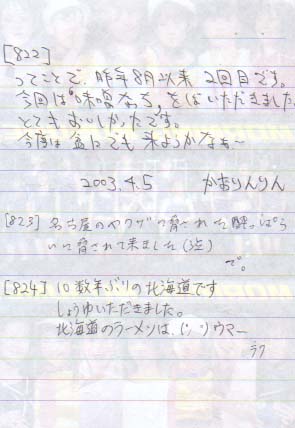 [822]
ってことで、昨年8月以来 2回目です。
今回は"味噌なっち"をばいただきました
とてもおいしかたです。
今度は 盆にでも 来ようかなぁ〜
2003.4.5 かおりんりん
[823] 名古屋のヤクザに脅された酔っぱら
いに脅されて来ました(泣)
で。
[824] 10数年ぶりの北海道です
しょうゆいただきました。
北海道のラーメンは、ウマー
ラク